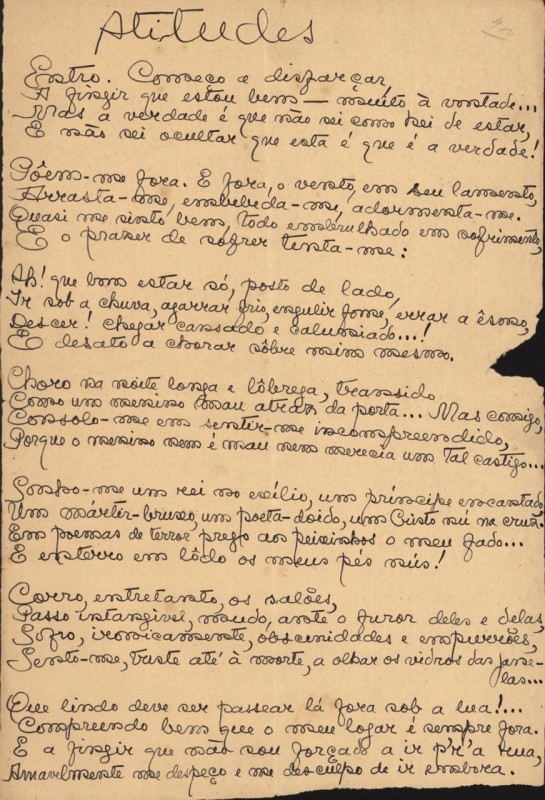 Atitudes
Entro. Começo a disfarçar,
A fingir que estou bem — muito à vontade...
Mas a verdade é que não sei como hei de estar,
E não sei ocultar que esta é que é a verdade!
Põem-me fora. E fora, o vento, em seu lamento,
Arrasta-me, embebeda-me, adormenta-me.
Quasi me sinto bem, todo embrulhado em sofrimento,
E o prazer de sofrer tenta-me:
Ah! que bom estar só, posto de lado,
Ir sob a chuva, agarrar frio, engulir fome, errar a êsmo,
Descer! chegar cansado e calumiado...!
E desato a chorar sôbre mim mesmo.
Choro na noite longa e lôbrega, transido
Como um menino mau atrás da porta... Mas comigo,
Consolo-me em sentir-me incompreendido,
Porque o menino nem é mau nem merecia um tal castigo...
Sonho-me um rei no exílio, um príncipe encantado,
Um mártir-bruxo, um poeta-doido, um Cristo nú na cruz.
Em poemas de terror prego aos peixinhos o meu fado...
E enterro em lôdo os meus pés nús!
Corro, entretanto, os salões,
Passo intangivel, mudo, ante o furor deles e delas,
Sofro, ironicamente, obscenidades e empurrões,
Sento-me, triste até à morte, a olhar os vidros das jane-
las...
Que lindo deve ser passear lá fora sob a lua!...
Compreendo bem que o meu logar é sempre fora.
E a fingir que não sou forçado a ir p'r'a rua,
Amavelmente me despeço e me desculpo de ir embora.